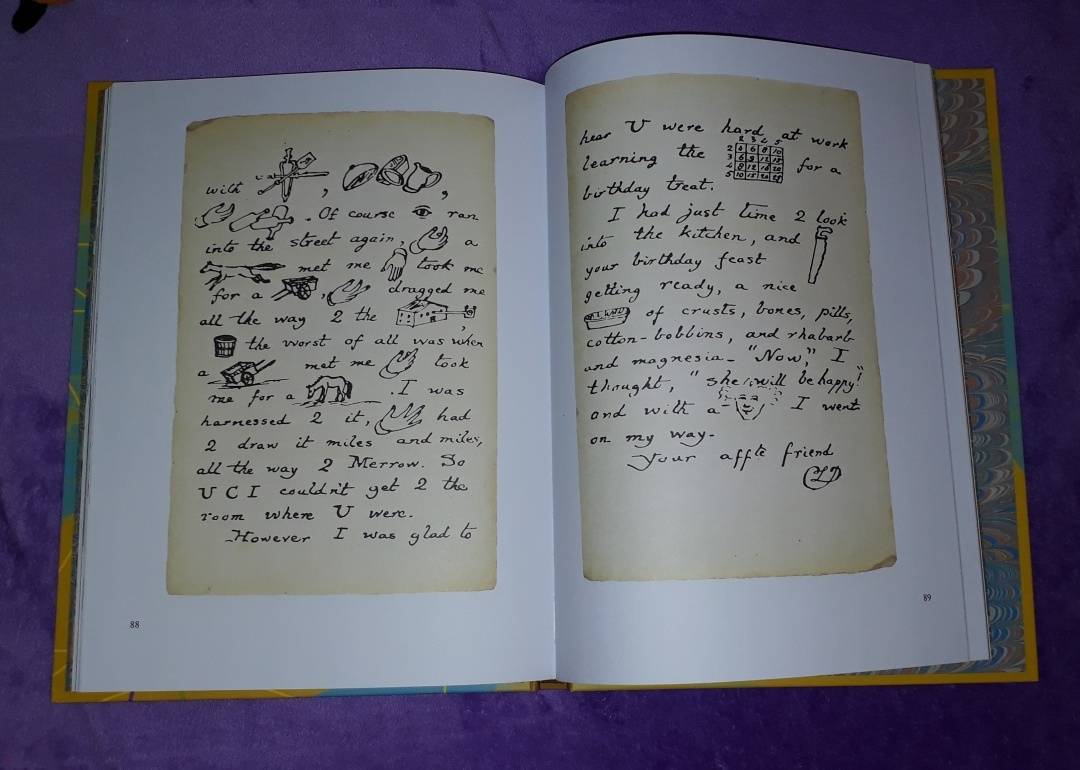 with , ,
. Of course ran
into the street again, a
met me took me
for a , dragged me
all the way 2 the ,
the worst of all was when
a met me took
me for a . I was
harnessed 2 it, had
2 draw it miles and miles,
all the way 2 Merrow. So
U C I couldn't get 2 the
room where U were.
However I was glad to
88
hear U were hard at work
learning the for a
2 3 4 5
2 4 6 8 10
3 6 9 12 15
4 8 12 16 20
5 10 15 20 25
birthday treat.
I had just time 2 look
into the kitchen, and
your birthday feast
getting ready, a nice
of crusts, bones, pills,
cotton-bobbins, and rhubarb
and magnesia - "Now," I
thought, "she will be happy!"
and with a I went
on my way.
Your affte friend
CLD
89